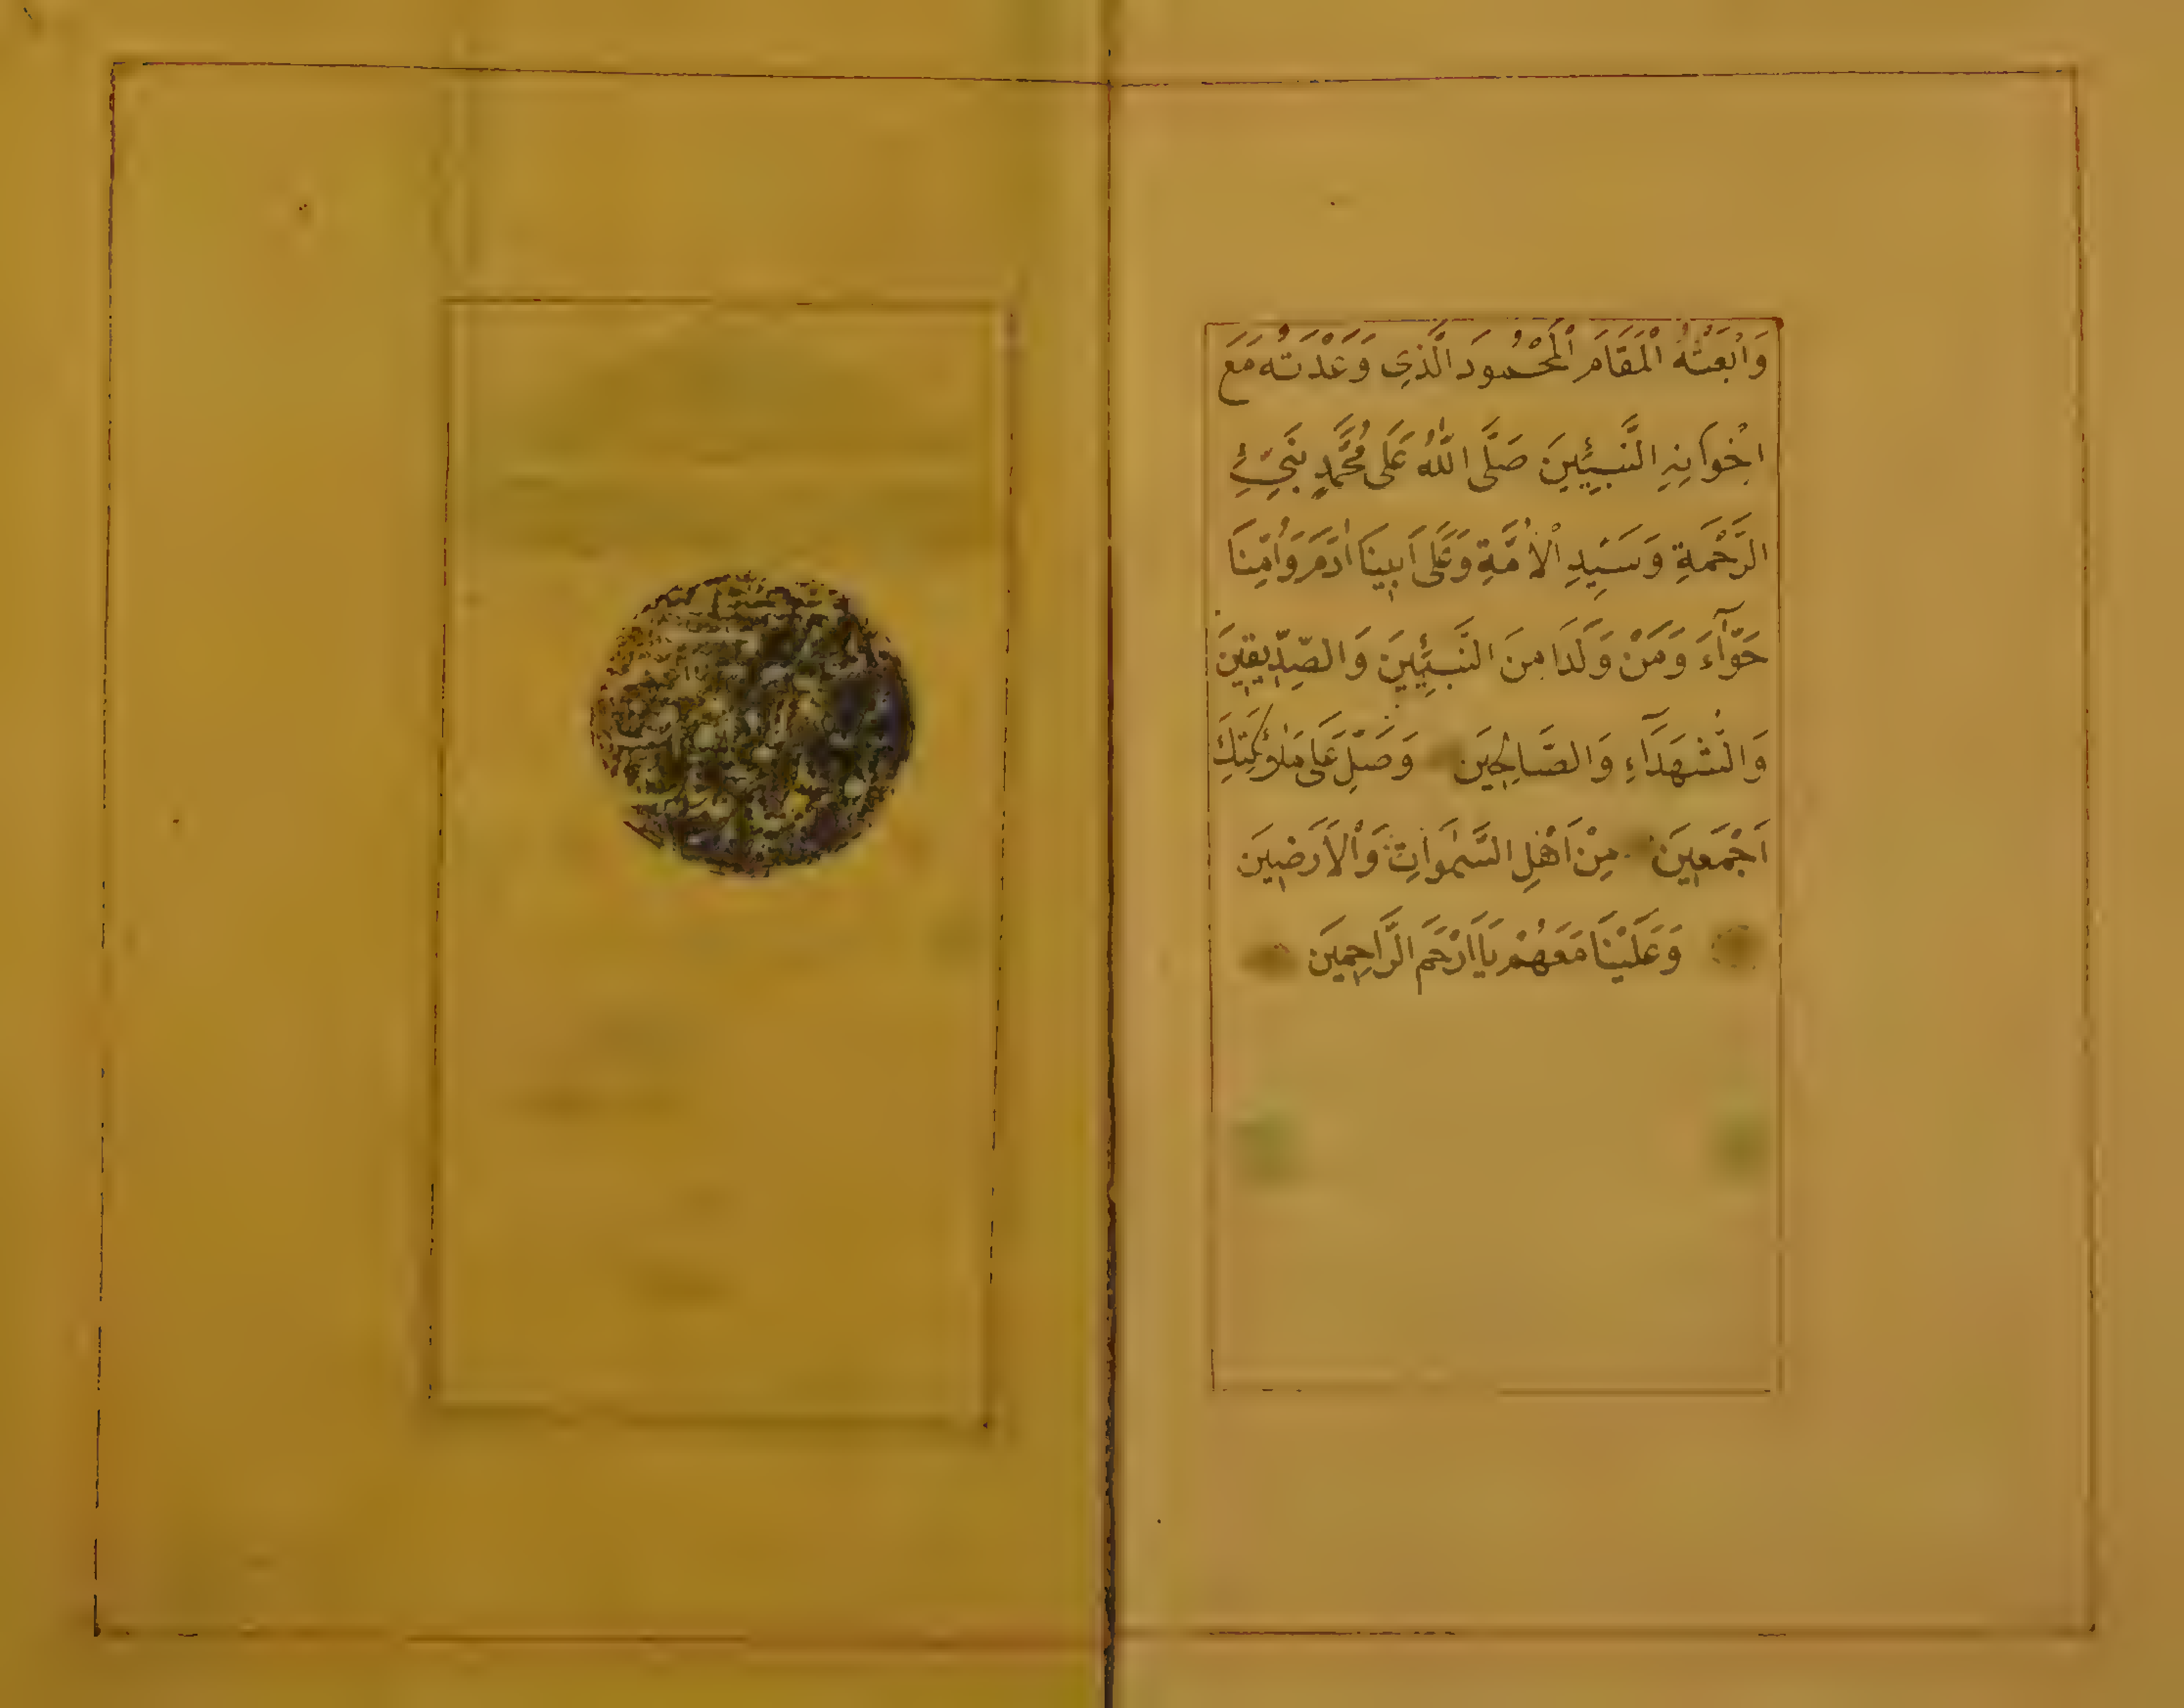 وَابْعَثْهُ الْمَقَامَ الْمَحْمُودَ الَّذِي وَعَدْتَهُ مَعَ
اِخْوَانِهِ النَّبِيِّينَ صَلَّى اللّٰهُ عَلَى مُحَمَّدٍ نَبِيِّ
الرَّحْمَةِ وَسَيِّدِ الْاُمَّةِ وَعَلَى اَبِينَا اٰدَمَ وَاُمِّنَا
حَوَّآءَ وَمَنْ وَلَدَا مِنَ النَّبِيِّينَ وَالصِّدِّيقِينَ
وَالشُّهَدَآءِ وَالصَّالِحِينَ وَصَلِّ عَلَى مَلٰٓئِكَتِكَ
اَجْمَعِينَ مِنْ اَهْلِ السَّمٰوَاتِ وَالْاَرَضِينَ
وَعَلَيْنَا مَعَهُمْ يَا اَرْحَمَ الرَّاحِمِينَ